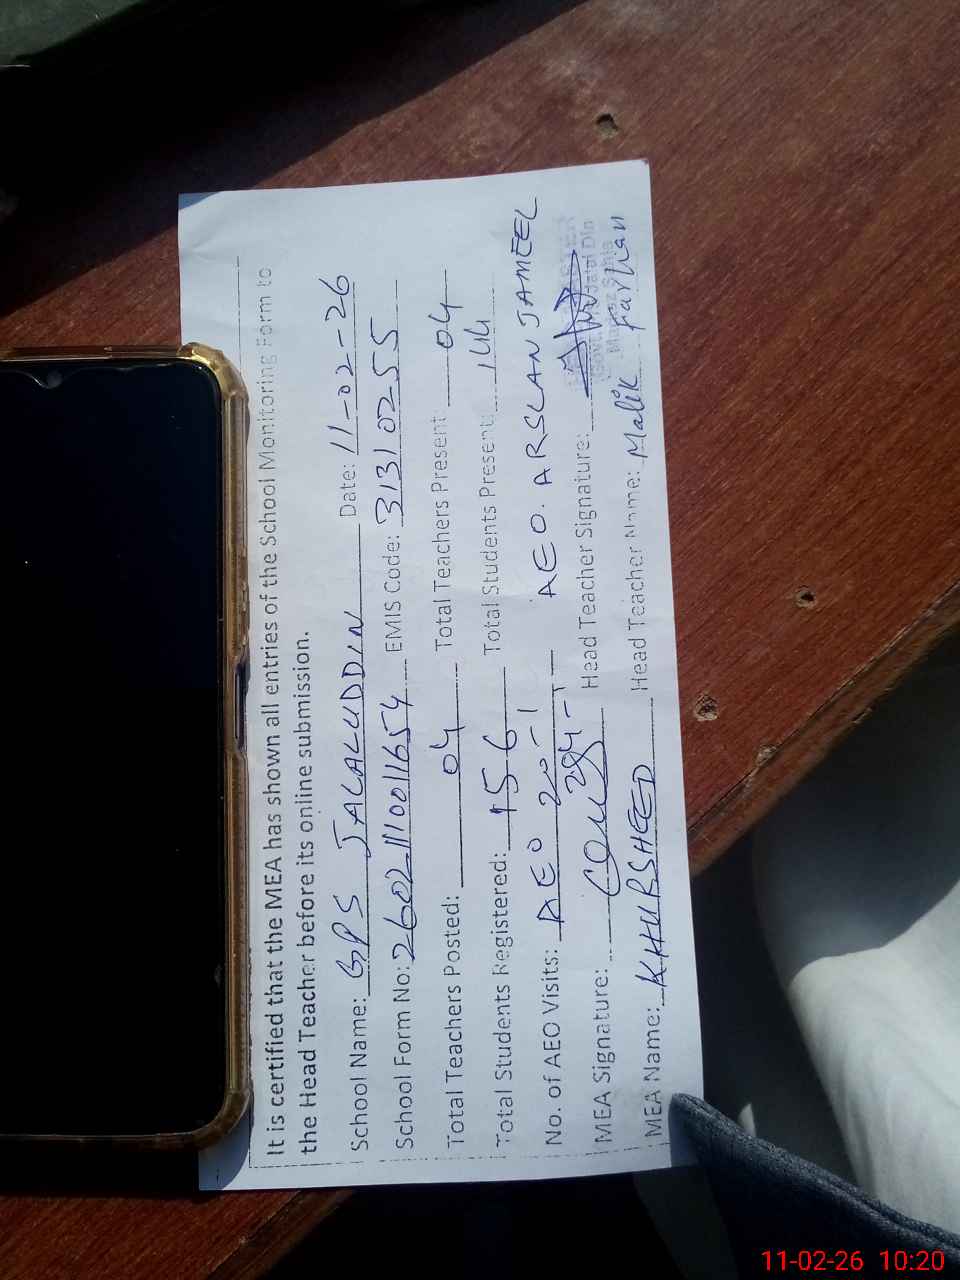 It is certified that the MEA has shown all entries of the School Monitoring Form to
the Head Teacher before its online submission.
School Name: GPS JALALUDDIN Date: 11-02-26
School Form No: 26021110011654 EMIS Code: 31310255
Total Teachers Posted: 04 Total Teachers Present: 04
Total Students Registered: 156 Total Students Present: 144
No. of AEO Visits: AEO 20-1 AEO. ARSLAN JAMEEL
MEA Signature: Head Teacher Signature:
MEA Name: KHURSHEED Head Teacher Name: Malik Farhan
11-02-26 10:20